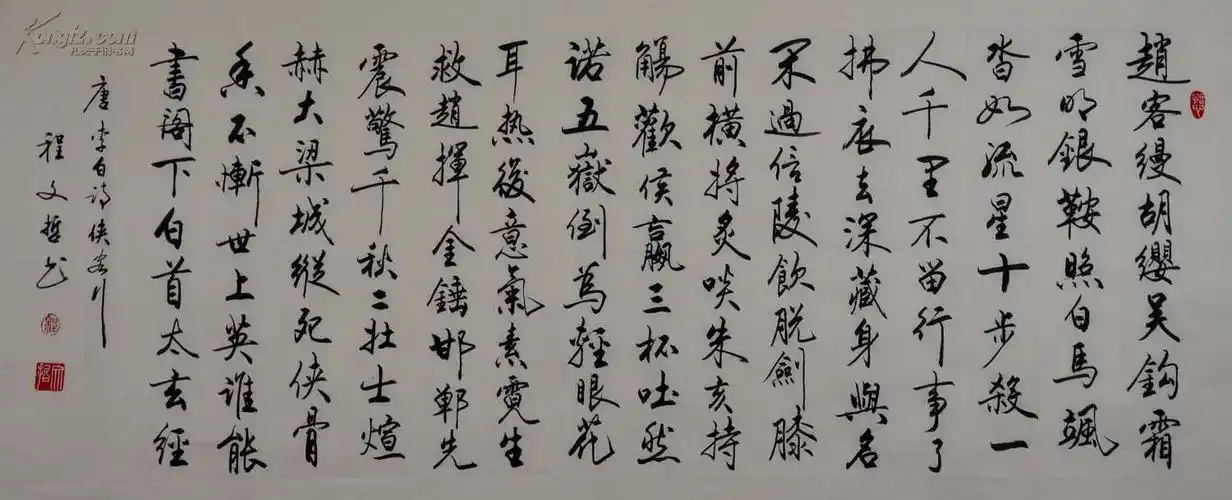 趙客縵胡纓吳鈎霜
雪明銀鞍照白馬颯
沓如流星十步殺一
人千里不留行事了
拂衣去深藏身與名
閑過信陵飲脫劍膝
前橫將炙啖朱亥持
觴歡侯嬴三杯吐然
諾五嶽倒為輕眼花
耳热後意氣素霓生
救趙揮金錘邯鄲先
震驚千秋二壯士煊
赫大梁城縱死俠骨
香不慚世上英誰能
書閣下白首太玄經
唐李白诗俠客行
程文哲书
Kongfz.com
孔夫子旧书网